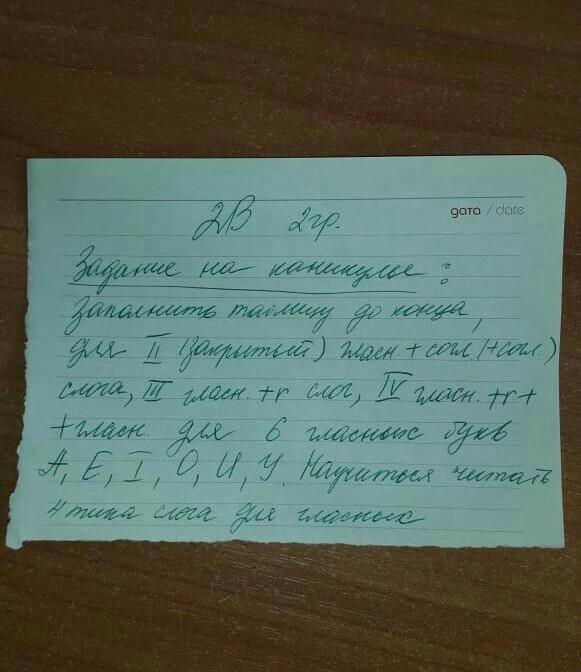 дата / date
2В 2гр.
Задание на каникулы:
Заполнить таблицу до конца,
для II (закрытый) гласн. + согл (+согл.)
слога, III гласн. +r слог, IV гласн. +r+
+гласн. для 6 гласных букв
A, E, I, O, U, Y. Научиться читать
4 типа слога для гласных